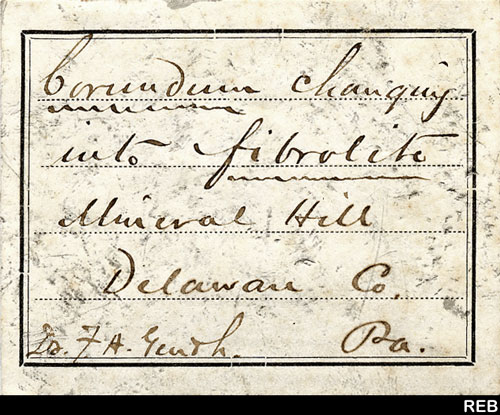 Corundum changing
into fibrolite
Mineral Hill
Delaware Co.
Dr. F A. Genth. Pa.
REB